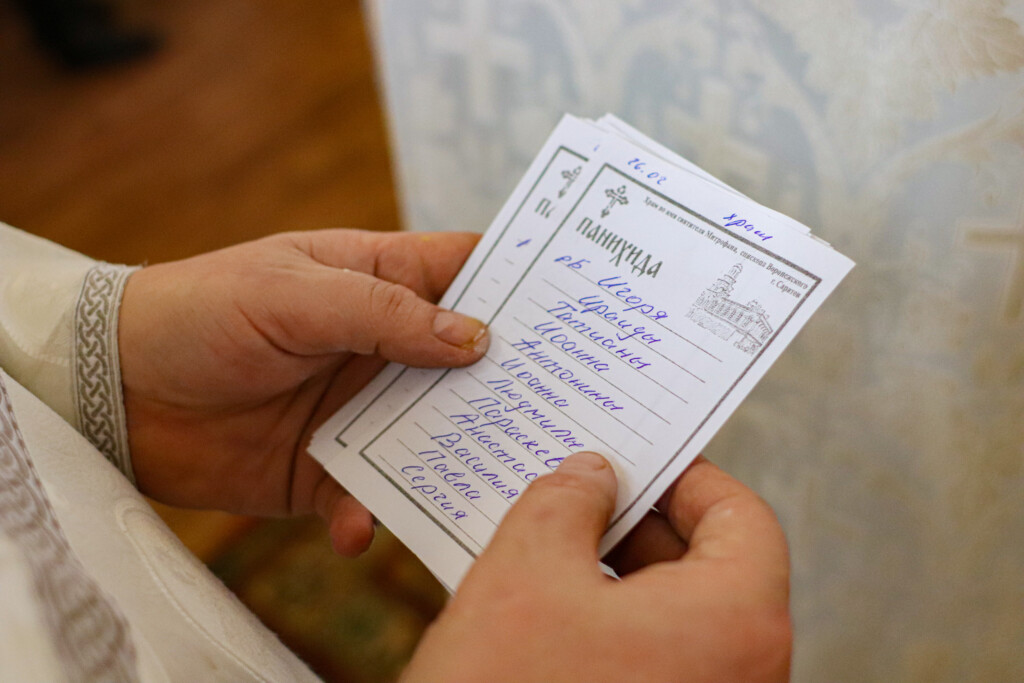 26.02 храм
Храм во имя святителя Митрофана, епископа Воронежского
г. Саратов
ПАНИХИДА
рБ Игоря
Ираиды
Татианы
Иоанна
Антонины
Иоанна
Людмилы
Параскев
Анастас
Василия
Павла
Сергия